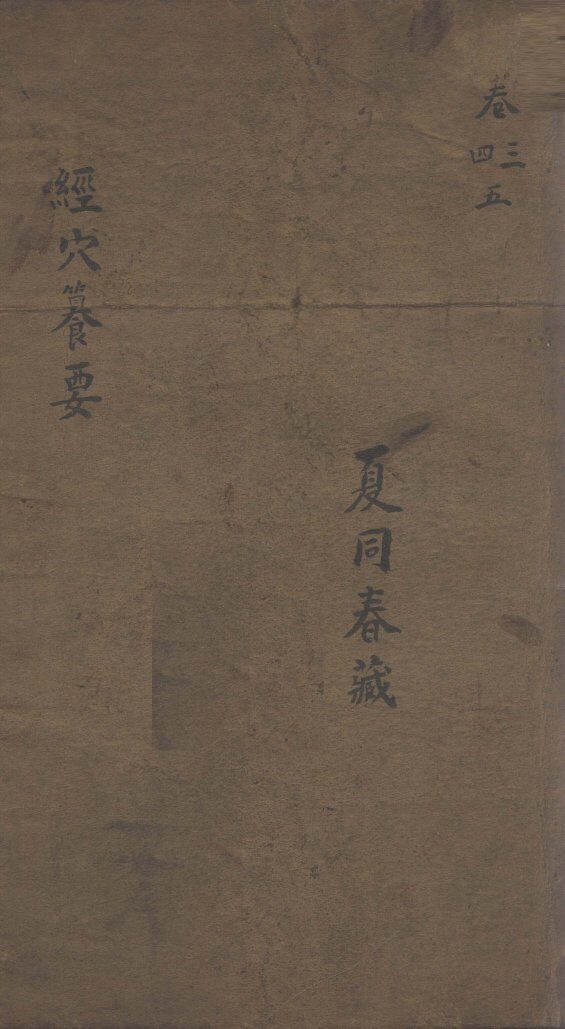 卷三四五
夏同春藏
經穴籑要